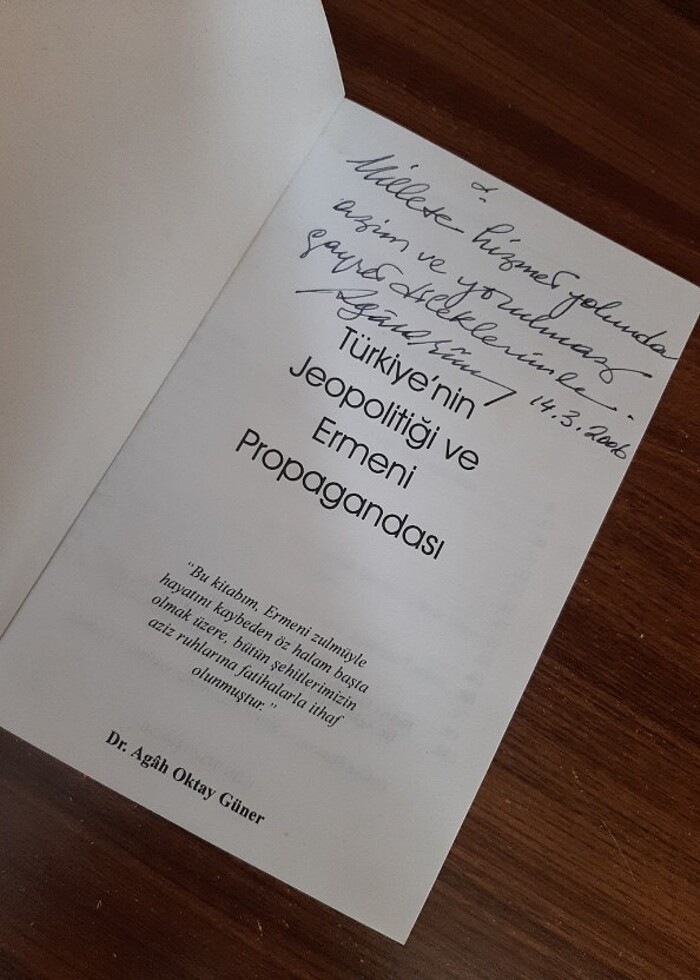 Millete hizmet yolunda
azim ve yorulmaz
gayret dileklerimle..
14.3.2006
Türkiye'nin
Jeopolitiği ve
Ermeni
Propagandası
"Bu kitabım, Ermeni zulmüyle
hayatını kaybeden öz halam başta
olmak üzere, bütün şehitlerimizin
aziz ruhlarına fatihalarla ithaf
olunmuştur."
Dr. Agâh Oktay Güner